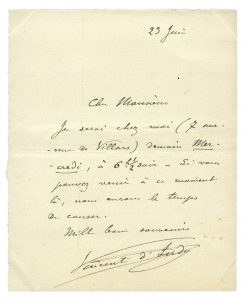 23 Juin
Cher Monsieur
Je serai chez moi (7 ave-
nue de Villars) demain Mer-
credi, à 6 h ½ soir - Si vous
pouvez venir à ce moment
là, nous aurons le temps
de causer.
Mille bons souvenirs
Vincent d'Indy